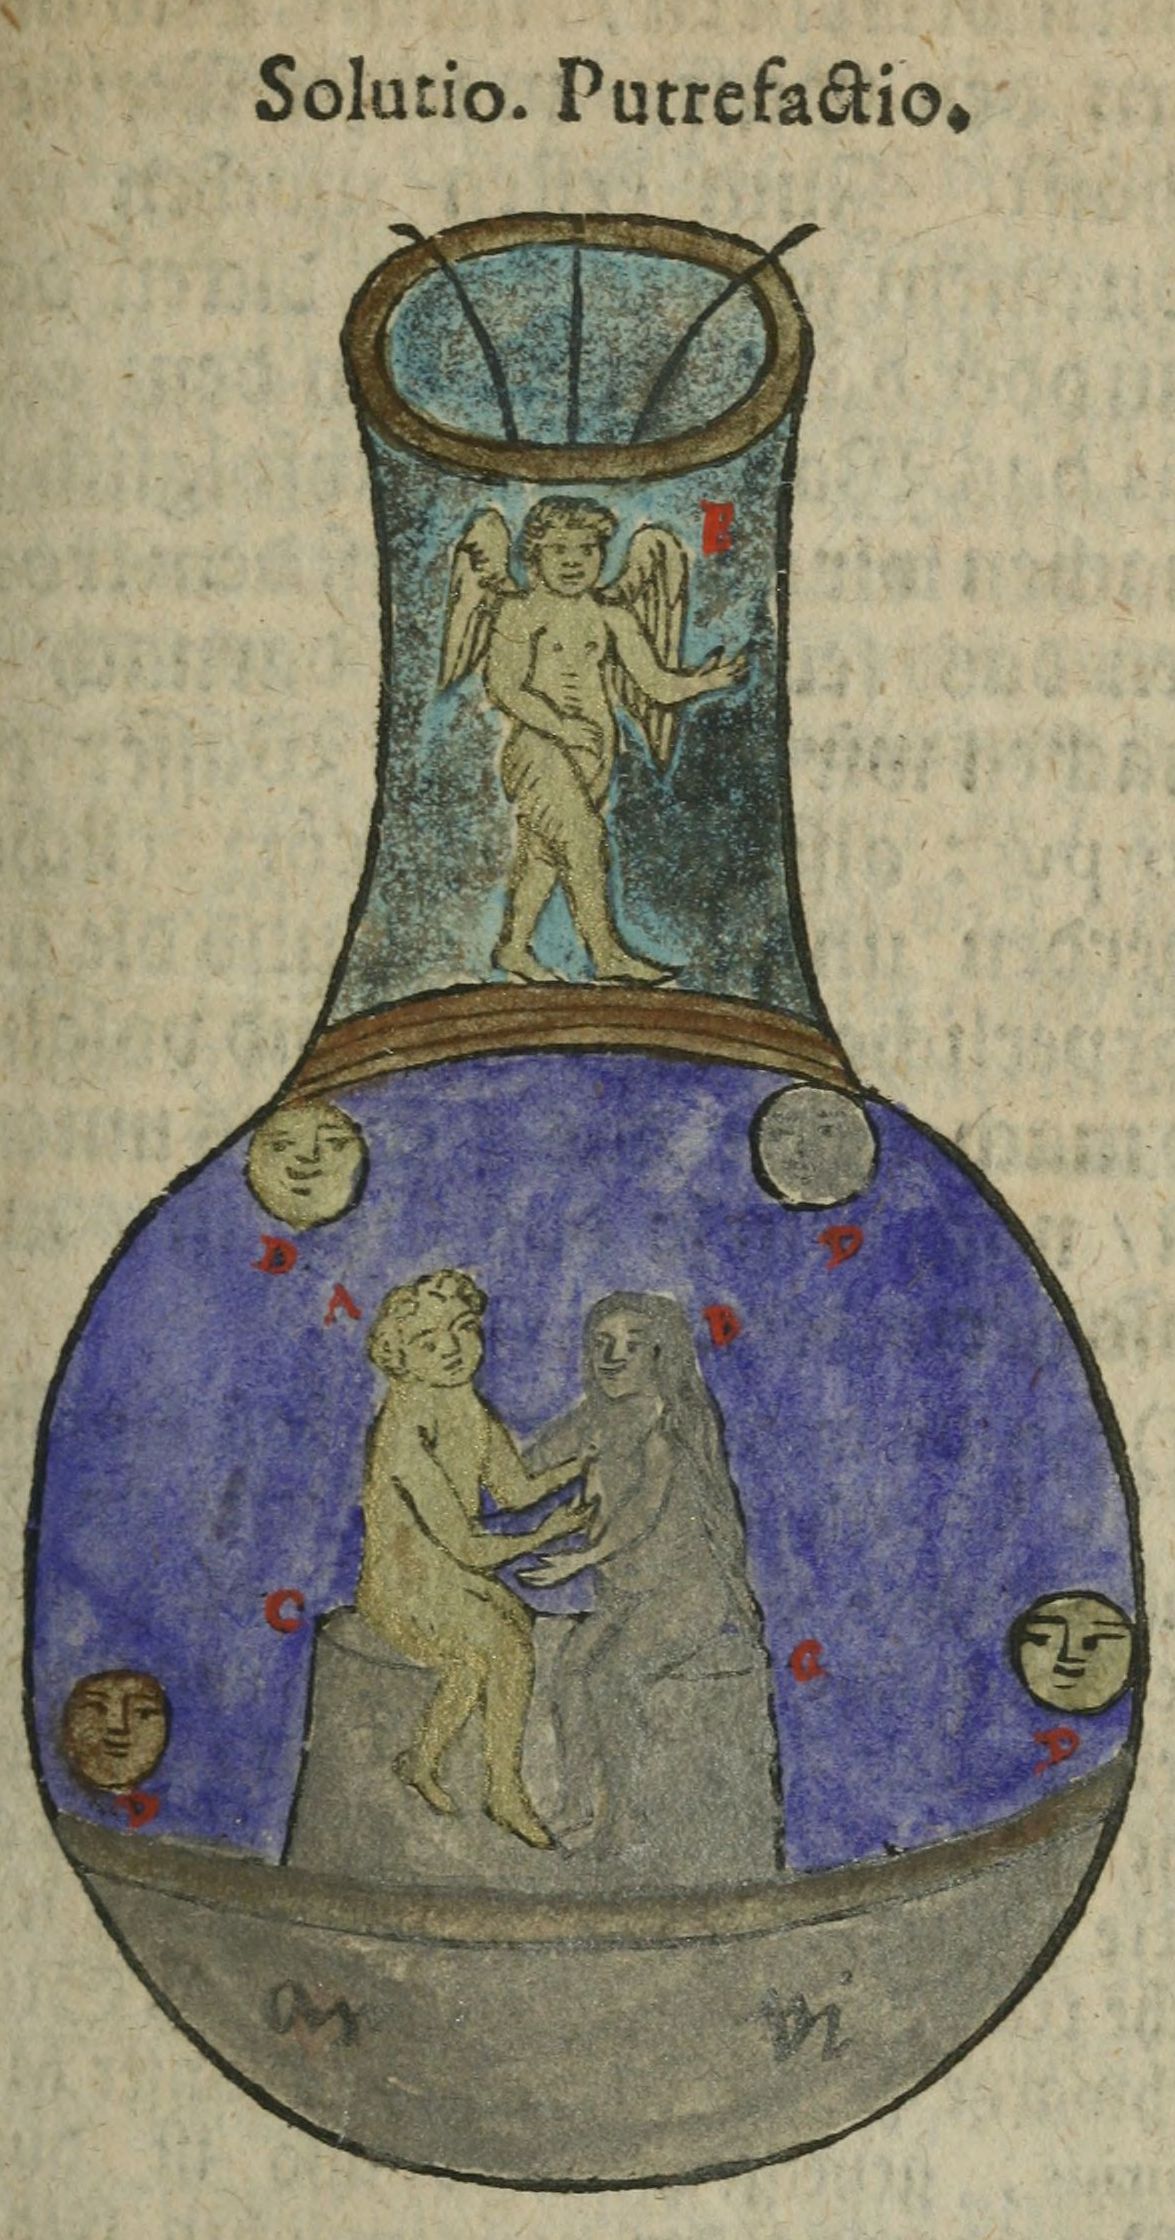 Solutio. Putrefactio.
E
D D
A B
C
G
D
D